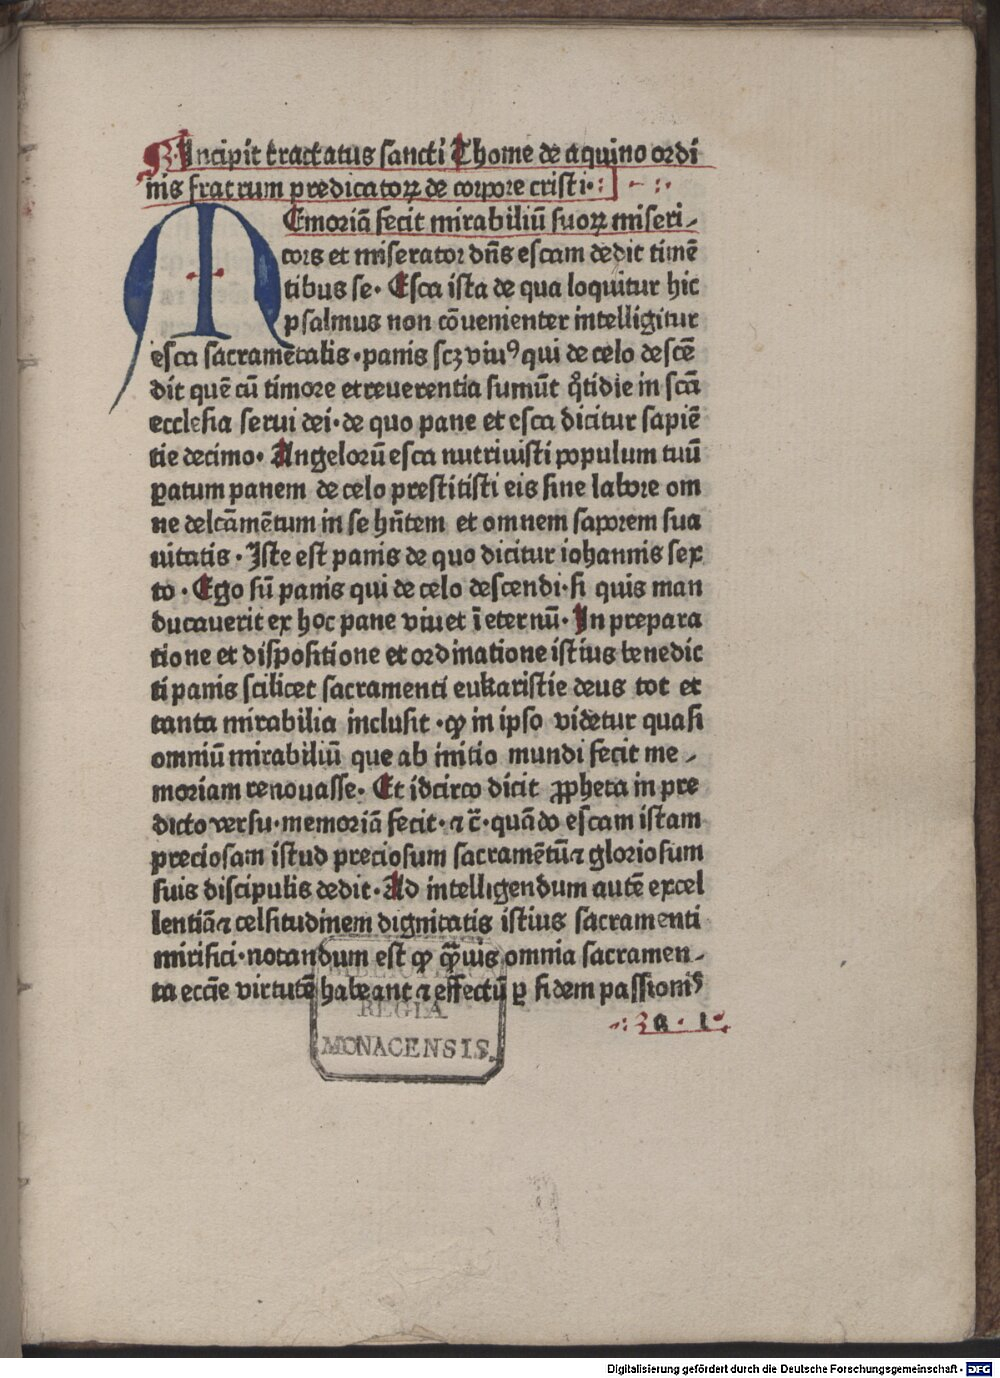 Incipit tractatus sancti Thome de aquino ordi
nis fratrum predicatoꝝ de corpore cristi·:
MEmoriā fecit mirabiliū suoꝝ miseri-
cors et miserator dn̄s escam dedit timē
tibus se· Esca ista de qua loquitur hic
psalmus non cōuenienter intelligitur
esca sacramētalis·panis scꝫ viuꝰ qui de celo descē
dit quē cū timore et reuerentia sumūt q̄tidie in scā
ecclesia serui dei·de quo pane et esca dicitur sapiē
tie decimo· Angelorū esca nutriuisti populum tuū
ꝑatum panem de celo prestitisti eis sine labore om
ne delcāmētum in se hn̄tem et omnem saporem sua
uitatis· Iste est panis de quo dicitur iohannis sex
to· Ego sū panis qui de celo descendi·si quis man
ducauerit ex hoc pane viuet ī eternū· In prepara
tione et dispositione et ordinatione istius benedic
ti panis scilicet sacramenti eukaristie deus tot et
tanta mirabilia inclusit·ꝙ in ipso videtur quasi
omniū mirabiliū que ab initio mundi fecit me-
moriam renouasse· Et idcirco dicit ꝓpheta in pre
dicto versu·memoriā fecit·⁊ c̄·quādo escam istam
preciosam istud preciosum sacramētū⁊ gloriosum
suis discipulis dedit·Ad intelligendum autē excel
lentiā⁊ celsitudinem dignitatis istius sacramenti
mirifici·notandum est ꝙ q̄uis omnia sacramen-
ta eccīe virtutē habeant ⁊ effectū ꝑ fidem passionꝭ
a·1
BIBLIOTHECA
REGIA
MONACENSIS.
Digitalisierung gefördert durch die Deutsche Forschungsgemeinschaft - DFG